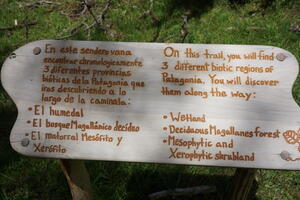 En este sendero vana
encontrar chronologicamente
3 diferentes provincias
bióticas de la Patagonia que
iras descubriendo a lo
largo de la caminata:
• El humedal
• El bosque Magallánico decideo
• El matorral Mesófito y
Xerófito
On this trail, you will find
3 different biotic regions of
Patagonia. You will discover
them along the way:
• Wetland
• Deciduous Magallanes forest
• Mesophytic and
• Xerophytic shrubland